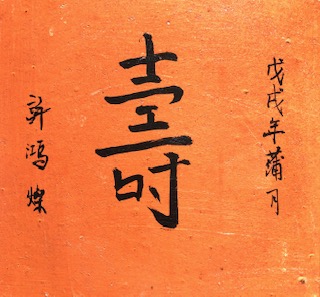 戊戌年蒲月
壽
許鴻燦